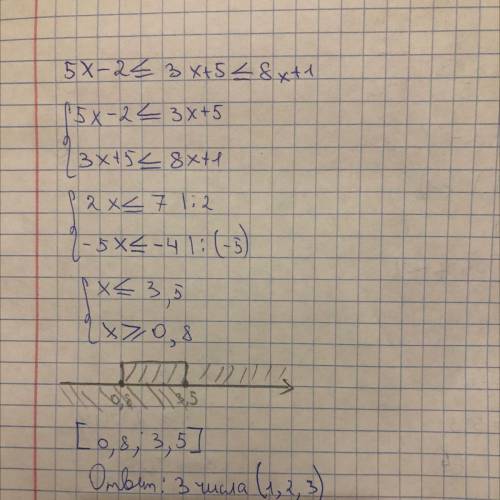 5x-2≤ 3x+5≤8x+1
5x-2≤ 3x+5
3x+5≤ 8x+1
2x≤ 7 |:2
-5x≤-4 |:(-5)
x≤ 3,5
x≥0,8
0,8 3,5
[0,8; 3,5]
Ответ: 3 числа (1,2,3)